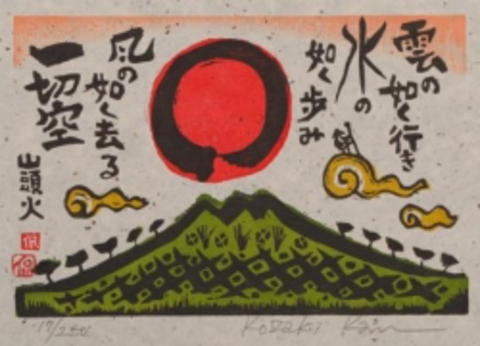 雲の如く行き
水の
如く歩み
風の如く去る
一切空
山頭火
侃
Kozaki Kan